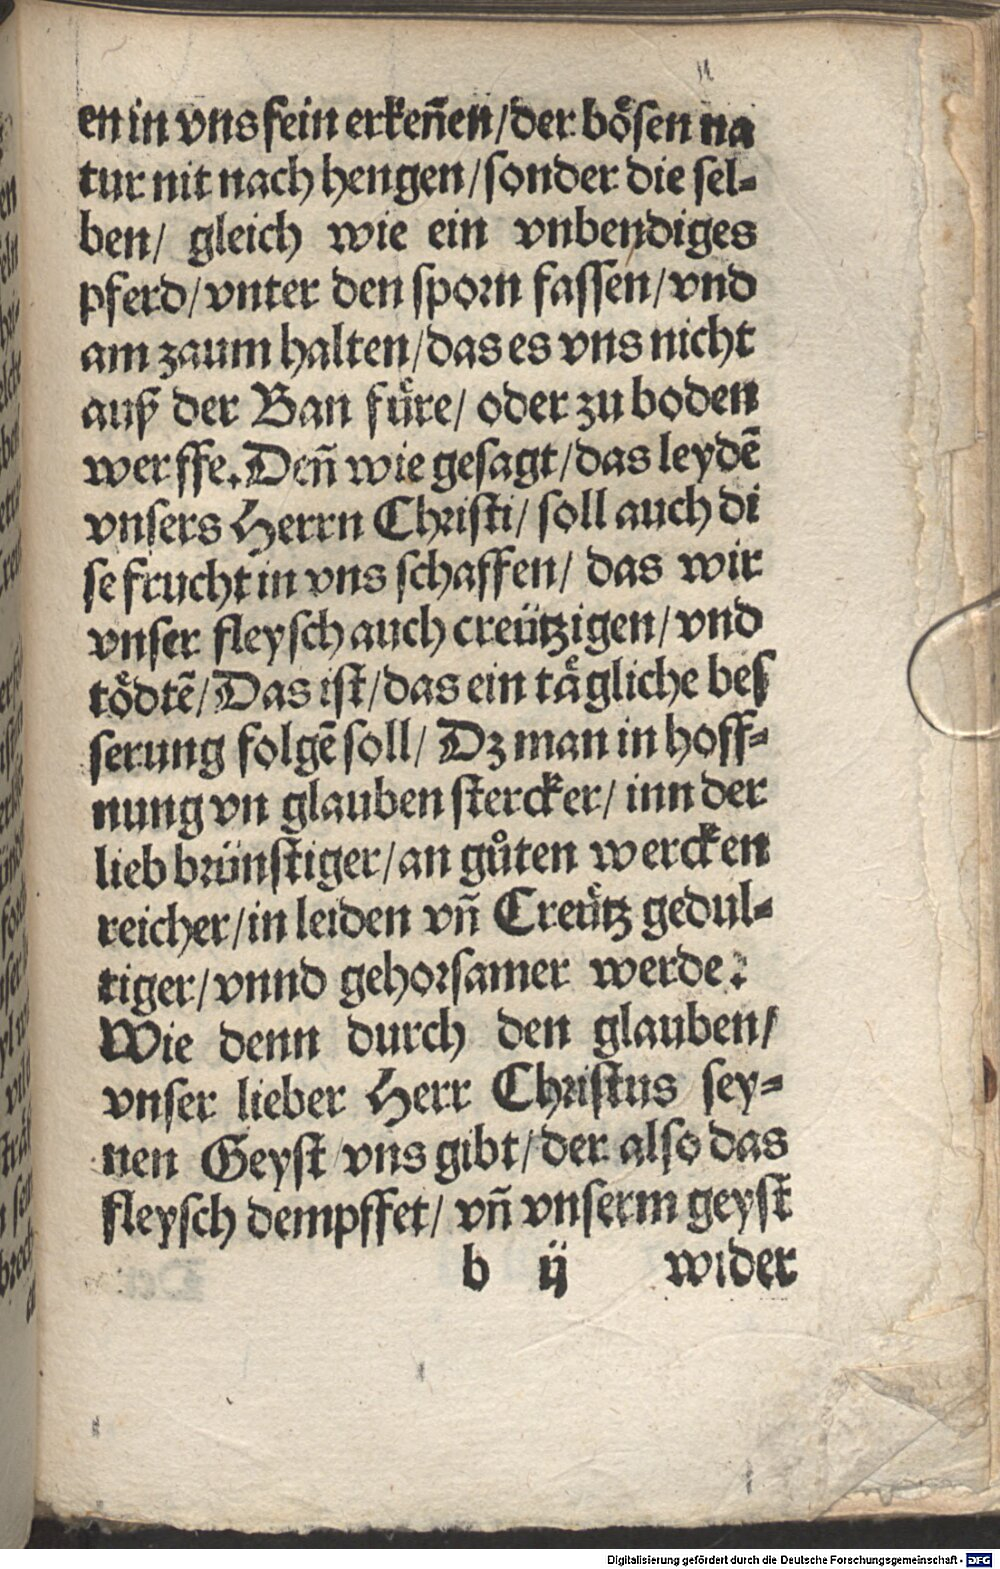 en in vns fein erkeñen/der bösen na
tur nit nach hengen/sonder die sel⸗
ben/ gleich wie ein vnbendiges
pferd/vnter den sporn fassen/vnd
am zaum halten/das es vns nicht
auß der Ban füre/ oder zu boden
werffe. Deñ wie gesagt/das leydẽ
vnsers Herrn Christi/ soll auch di
se frucht in vns schaffen/ das wir
vnser fleysch auch creützigen/vnd
tödtẽ/Das ist/das ein tägliche bes
serung folgẽ soll/ Dz man in hoff⸗
nung vn glauben stercker/ inn der
lieb brünstiger/an gůten wercken
reicher/in leiden vñ Creütz gedul⸗
tiger/vnnd gehorsamer werde:
Wie denn durch den glauben/
vnser lieber Herr Christus sey⸗
nen Geyst vns gibt/der also das
fleysch dempffet/ vñ vnserm geyst
b ij wider
Digitalisierung gefördert durch die Deutsche Forschungsgemeinschaft - DFG